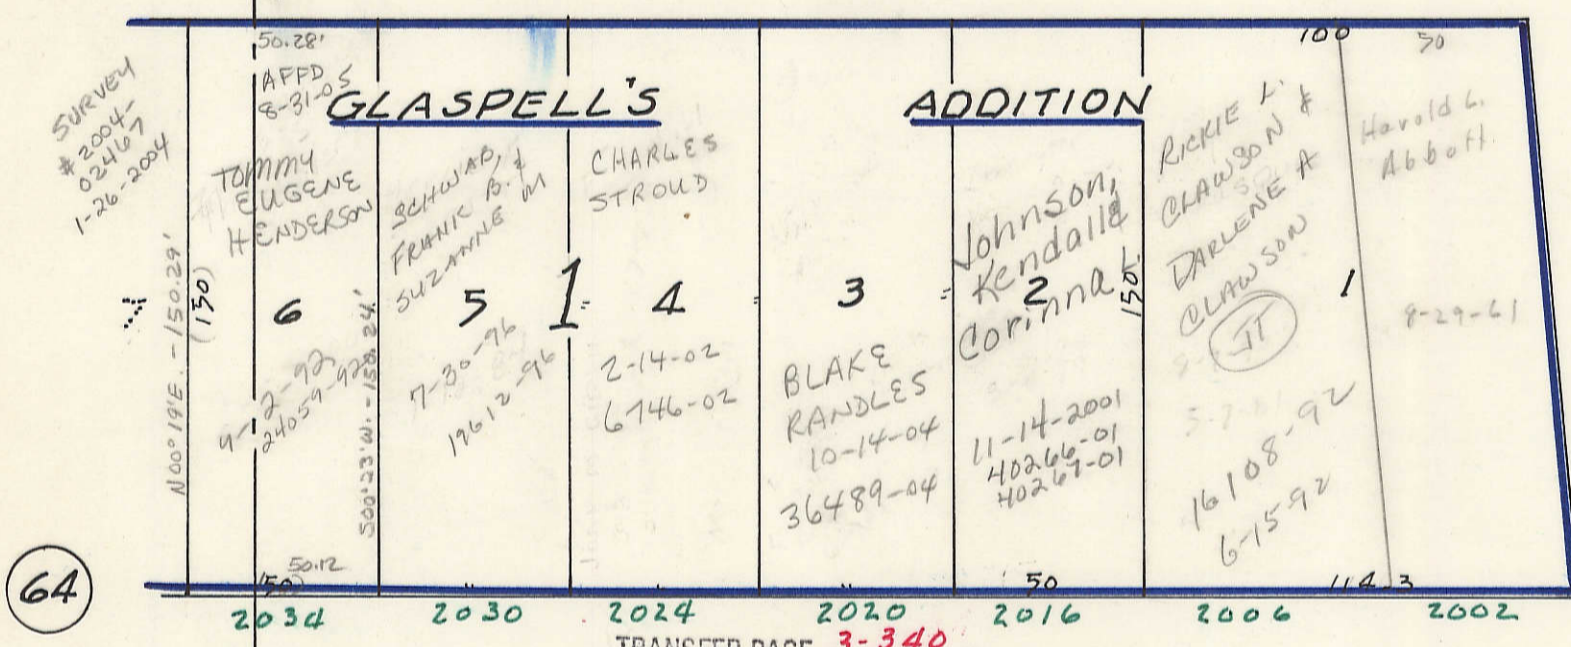 GLASPELL'S ADDITION
SURVEY
# 2004-
02467
1-26-2004
N00°19'E. - 150.29'
(150)
50.28'
AFFD
8-31-05
TOMMY
EUGENE
HENDERSON
6
9-2-92
24059-92
S00°23'W. - 150.24'
50.12
(50)
SCHWAB,
FRANK B. &
SUZANNE M
5
7-30-96
19612-96
1
CHARLES
STROUD
4
2-14-02
6746-02
3
BLAKE
RANDLES
10-14-04
36489-04
Johnson,
Kendall &
Corinna L.
2
150
11-14-2001
40266-01
40267-01
50
100
RICKIE L.
CLAWSON &
DARLENE A
CLAWSON
II
16108-92
6-15-92
1
50
Harold L.
Abbott
8-29-61
114.3
64
2034 2030 2024 2020 2016 2006 2002
TRANSFER PAGE 3-340